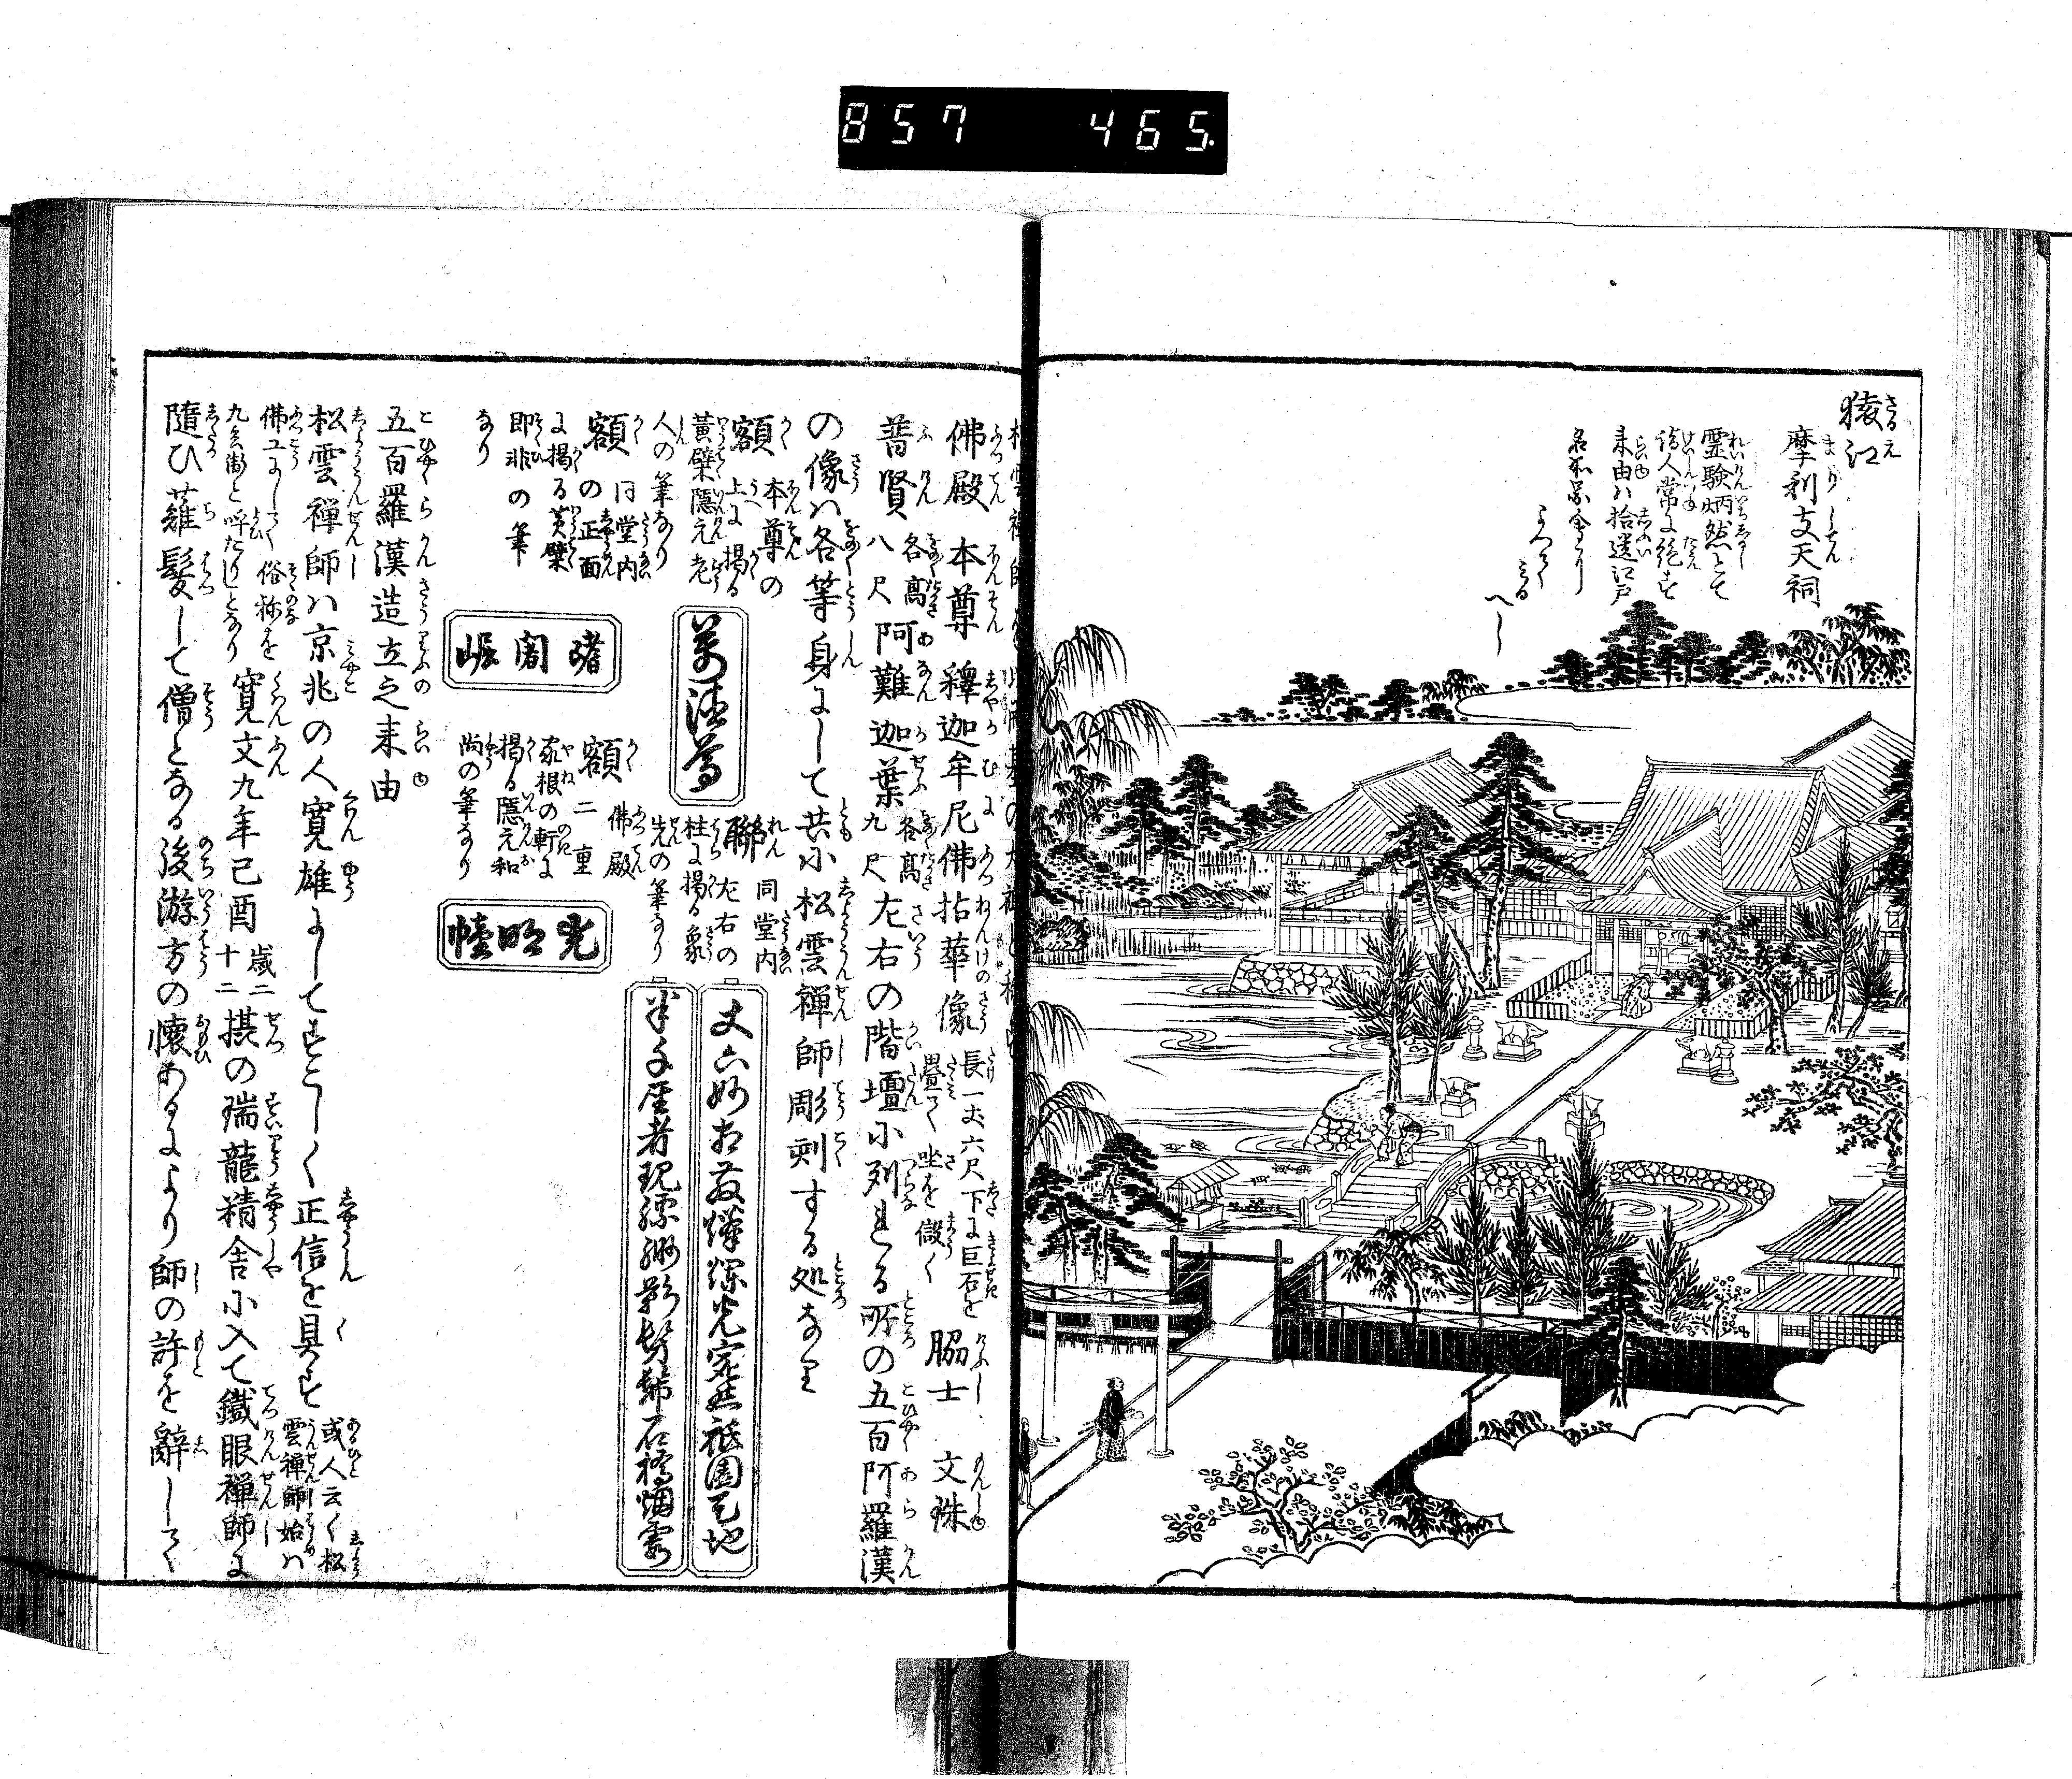 857 465.
猿江
摩利支天祠
霊験炳然とて
詣人常に絶す
来由ハ拾遺江戸
名所図会に
よつて
みる
へし
佛殿 本尊 釋迦牟尼佛拈華像 長一丈六尺下に巨石を畳て坐を假く 脇士 文珠
普賢 各高八尺 阿難迦葉 各高九尺 左右の階壇に列れる所の五百阿羅漢
の像ハ各等身にして共に松雲禅師彫刻する処なり
額 本尊の上に掲る
黄檗隠元老
人の筆なり
額 同堂内
の正面
に掲る黄檗
即非の筆
なり
萬德尊
耆闍崛
聯 同堂内
左右の
柱に掲る
先の筆なり
額 佛殿
二重
家根の軒に
掲る隠元和
尚の筆なり
光明幢
五百羅漢造立之来由
松雲禅師ハ京兆の人寛雄にしてすこしく正信を具す 或人云く松雲禅師始ハ
佛工にして俗称を
九兵衛と呼たりしとなり 寛文九年己酉 歳二十二 摂の瑞龍精舎に入て鐵眼禅師に
随ひ薙髪して僧となる後游方の懐あるにより師の許を辭して